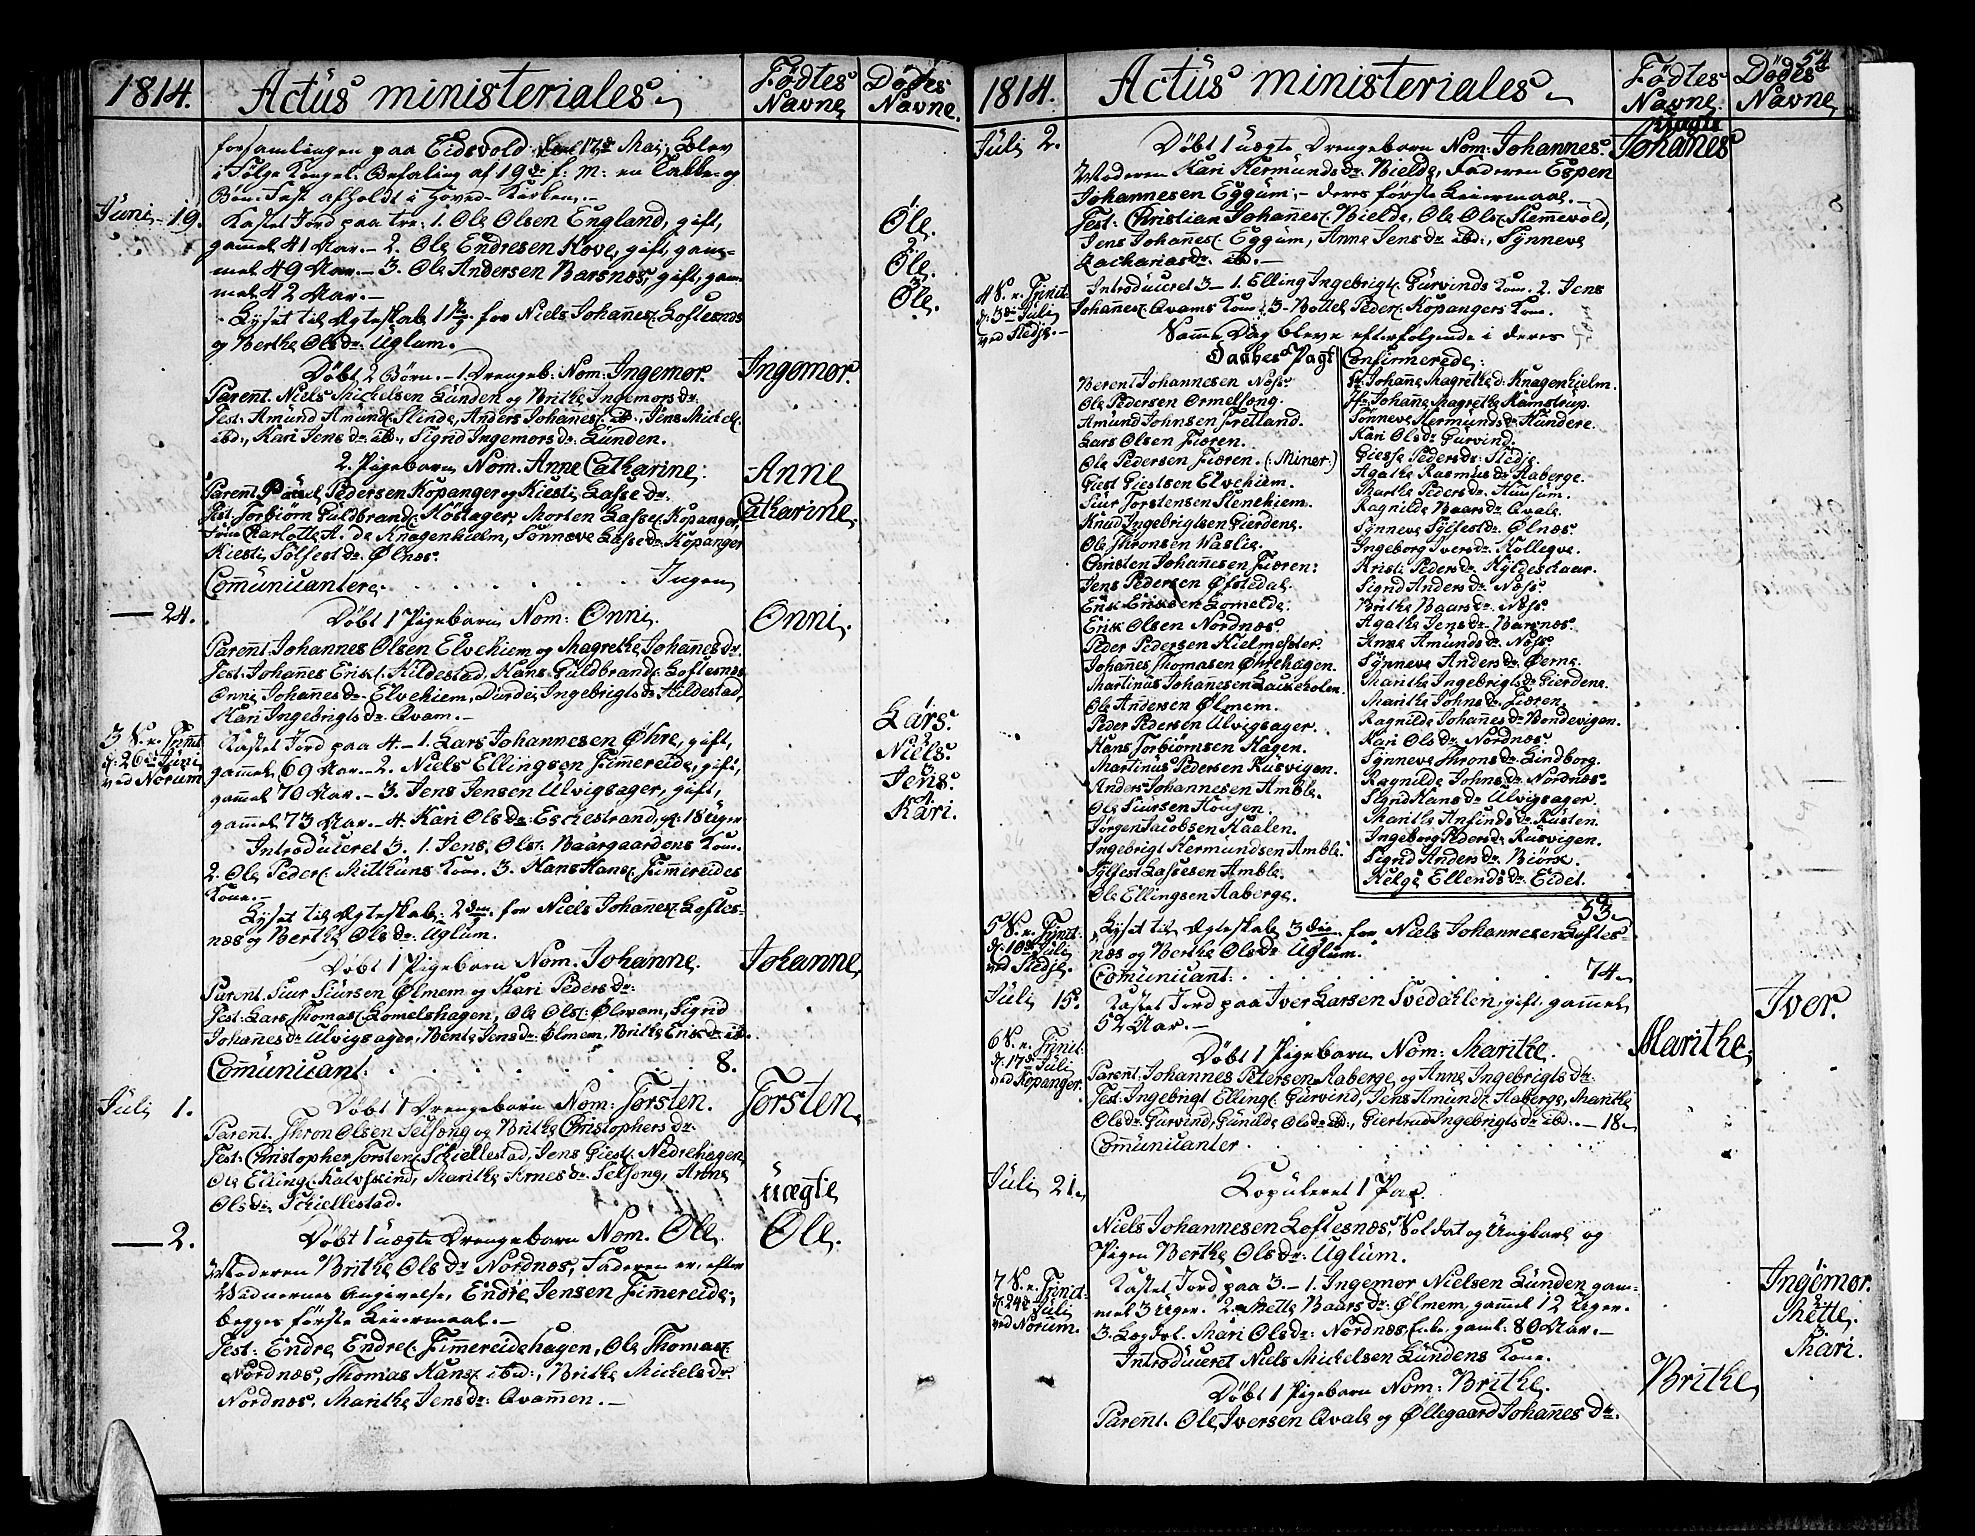 1814.
Actüs ministeriales
Fødtes Navne
Dødes Navne.
forsamlingen paa Eidsvold den 17de Mai, blev
i Følge Kongel. Befaling af 19de f: M: en Takke- og
Bede-Fest afholdt i Hoved-Kirken.
Jüni 19.
Kastet Jord paa tre: 1. Ole Olsen England, gift,
Ole.
gammel 41 Aar. 2. Ole Endresen Hove, gift, gam-
2
Ole.
mel 49 Aar. 3. Ole Andersen Barsnæs, gift, gam-
3
Ole.
mel 42 Aar.
Lyset til Ægteskab 1ste g. for Niels Johannes. Loftesnæs
og Berthe Olsdr. Uglum.
Døbt 2 Børn. 1. Drengeb: Nom: Ingemor.
Ingemor.
Parent: Niels Michelsen Lünden og Brithe Ingemorsdr.
Test: Amünd Amünds. Slinde, Anders Johannes. ibd., Jens Michels.
ibd:, Kari Jensdr. ibd:, Sigrid Ingemorsdr. Lünden.
2. Pigebarn Nom: Anne Catharine.
Anne
Catharine
Parent: Povel Pedersen Kopanger og Kiesti Lassedr.
Test: Torbiörn Güldbrands. Høstager, Morten Lasses. Kopanger,
Frue Charlotte A. de Knagenhielm, Sønneve Lassedr. Kopanger
Kiesti Sølfestdr. Ølnæs.
Com̄ünicantere . . . . . . Ingen
— 24.
Døbt 1 Pigebarn Nom: Onni.
Onni.
Parent: Johannes Olsen Elvehiem og Magrethe Johannesdr.
Test: Johannes Eriks. Hildestad, Hans Güldbrands. Loftesnæs
Onni Johannesdr. Elvehiem, Dordei Ingebrigtsdr. Hildestad,
Kari Ingebrigtsdr. Qvam.
3 S. e. Trinit.
d: 26de Jüni
ved Norum
Kastet Jord paa 4. 1. Lars Johannesen Øhre, gift,
Lars.
gammel 69 Aar. 2. Niels Ellingsen Fimereide, gift,
2
Niels.
gammel 70 Aar. 3. Jens Jensen Ülvigsager, gift,
3
Jens.
gammel 73 Aar. 4. Kari Olsdr. Eschestrand, gl: 18 Uger
4
Kari.
Introdüceret 3. 1. Jens Ols: Baargaardens Kone.
2. Ole Peders. Mitküns Kone. 3. Hans Hans. Fimereides
Kone.
Lyset til Ægteskab 2den g. for Niels Johannes. Loftes-
næs og Berthe Olsdr. Uglum.
Døbt 1 Pigebarn Nom: Johanne.
Johanne
Parent: Siur Siursen Ølmem og Kari Pedersdr:
Test: Lars Thomas. Lomelshagen, Ole Ols. Ølvam, Sigrid
Johannesdr. Ülvigsager, Bente Jensdr: Ølmem, Brithe Eriksdr. ib.
Com̄ünicant: . . . . . . 8.
Jüli 1.
Døbt 1 Drengebarn Nom: Torsten.
Torsten
Parent: Thron Olsen Selsong og Brithe Christophersdr.
Test: Christopher Torstens. Schiellestad, Jens Giests. Nedrehagen
Ole Ellings. Kalvskind, Marithe Arnesdr. Selsong, Anne
Olsdr. Schiellestad.
— 2.
Døbt 1 uægte Drengebarn Nom. Ole.
üægte
Ole.
Moderen Brithe Olsdr. Nordnæs, Faderen er, efter
Vidnernes Angivelse, Endre Jensen Fimereide,
begges første Leiermaal.
Test: Endre Endres. Fimereidehagen, Ole Thomas.
Nordnæs, Thomas Hans. ibd:, Brithe Michelsdr.
Nordnæs, Marithe Jensdr: Qvammen.
54
1814.
Actüs ministeriales
Fødtes Navne
Dødes Navne
Jüli 2.
Døbt 1 uægte Drengebarn Nom: Johannes.
uægte
Johannes
Moderen Kari Hermündsdr. Bielde, Faderen Espen
Johannesen Eggüm, deres første Leiermaal.
Test: Christian Johannes. Bielde, Ole Ols. Slemevold,
Jens Johannes. Eggüm, Anne Jensdr. ibd:, Synneve
Zachariasdr. ibd.
4 S. e. Trinit:
d: 3die Jüli
ved Stedje.
Introdüceret 3. 1. Elling Ingebrigts. Gürvinds Kone. 2. Jens
Johannes. Qvams Kone. 3. Bottel Peders. Kopangers Kone.
Samme Dag bleve efterfølgende i deres
Daabes Pagt Confirmerede:
Berent Johannesen Nøss.
Ole Pedersen Ormelsong.
Amünd Johnsen Fretland.
Lars Olsen Fiæren.
Ole Pedersen Fiæren. (: Minor:)
Giest Giestsen Elvehiem.
Siur Torstensen Stenehiem.
Knud Ingebrigtsen Gierdene.
Ole Thronsen Waslie.
Christen Johannesen Fiæren:
Jens Pedersen Øfstedal.
Erik Eriksen Lomelde.
Erik Olsen Nordnæs.
Peder Pedersen Hielmesæter.
Johannes Thomasen Øhrehagen.
Martinüs Johannesen Lauseholen.
Ole Andersen Ølmem.
Peder Pedersen Ulvigsager.
Hans Torbiörnsen Hagen.
Martinüs Pedersen Rüsvigen.
Anders Johannesen Amble.
Ole Siursen Hougen.
Jørgen Jacobsen Kaalen.
Ingebrigt Hermundsen Amble.
Sylfest Lassesen Amble.
Ole Ellingsen Aaberge.
Fr. Johanne Magrethe d: Knagenhielm.
Jfr. Johanne Magrethe Kamstrüp.
Sønneve Hermündsdr. Hündere.
Kari Olsdr. Gürvind.
Giesse Pedersdr. Stedje.
Agathe Rasmüsdr. Aaberge.
Marthe Pedersdr. Hüüsüm.
Ragnilde Baarsdr. Qvale.
Synneve Sylfestdr. Ølnæs.
Ingeborg Iversdr. Kollegve.
Kristi Pedersdr. Hyldeskaar.
Sigrid Andersdr. Nøss.
Brithe Baarsdr. Nøss.
Agathe Jensdr. Barsnæs.
Anne Amündsdr. Nøss.
Synneve Andersdr. Øerne.
Marithe Ingebrigtsdr. Gierdene.
Marithe Johnsdr. Fiæren.
Ragnilde Johannesdr. Bondevigen.
Kari Olsdr. Nordnæs.
Synneve Thronsdr. Lindborg.
Ragnilde Johnsdr. Nordnæs.
Sigrid Hansdr. Ulvigsager.
Marithe Anfindsdr. Rüsten.
Ingeborg Pedersdr. Rüsvigen.
Sigrid Andersdr. Biörk.
Helge Ellendsdr. Eidet.
53
5 S. e. Trinit:
d: 10de Jüli
ved Stedje.
Lyset til Ægteskab 3die g. for Niels Johannesen Loftes-
næs og Berthe Olsdr: Uglum.
Com̄ünicant: . . . . . . 74
Jüli 15.
Kastet Jord paa Iver Larsen Svedahlen, gift, gammel
Iver.
52 Aar.
6 S. e. Trinit:
d: 17de Jüli
ved Kopanger.
Døbt 1 Pigebarn Nom: Marithe.
Marithe
Parent: Johannes Petersen Aaberge og Anne Ingebrigtsdr.
Test: Ingebrigt Ellings. Gürvind, Jens Amünds. Aaberge, Marithe
Olsdr. Gürvind, Günilde Olsdr. ibd:, Giertrud Ingebrigtsdr. ibd:. 18
Com̄ünicanter .
Jüli 21.
Kopüleret 1 Par.
Niels Johannesen Loftesnæs, Soldat og Üngkarl og
Pigen Berthe Olsdr: Uglum.
7 S. e. Trinit:
d: 24de Jüli
ved Norum.
Kastet Jord paa 3. 1. Ingemor Nielsen Lünden gam-
Ingemor.
mel 3 Uger. 2. Mette Baarsdr: Ølmem, gammel 12 Uger.
2
Mette.
3. Lægdsl. Mari Olsdr: Nordnæs Enke gaml: 80 Aar.
3
Mari.
Introdüceret Niels Michelsen Lündens Kone.
Døbt 1 Pigebarn Nom: Brithe.
Brithe
Parent: Ole Iversen Qvale og Øllegaard Johannesdr.